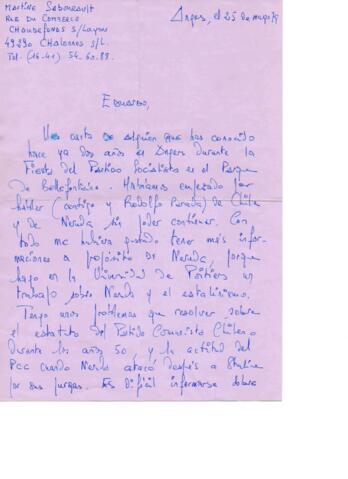 MARTINE SABOURAULT
RUE DU COMMERCE
CHAUDEFONDS S/Layon
49290 CHALONNES S/L.
Tel. (16-41) 54.60.89.
Angers, el 25 de mayo
EDUARDO,
Una carta de alguien que has conocido
hace ya dos años en Angers durante la
Fiesta del Partido Socialista en el Parque
de Bellefontaine. Habíamos empezado por
hablar (contigo y Rodolfo Parada) de Chile
y de Neruda sin poder continuar. Con
todo me hubiera gustado tener más infor-
maciones a propósito de Neruda, porque
hago en la Universidad de Poitiers un
trabajo sobre Neruda y el estalinismo.
Tengo unos problemas que resolver sobre
el estatuto del Partido Comunista Chileno
durante los años 50, y la actitud del
PCC cuando Neruda atacó después a Staline
por sus purgas. Es difícil informarse sobre